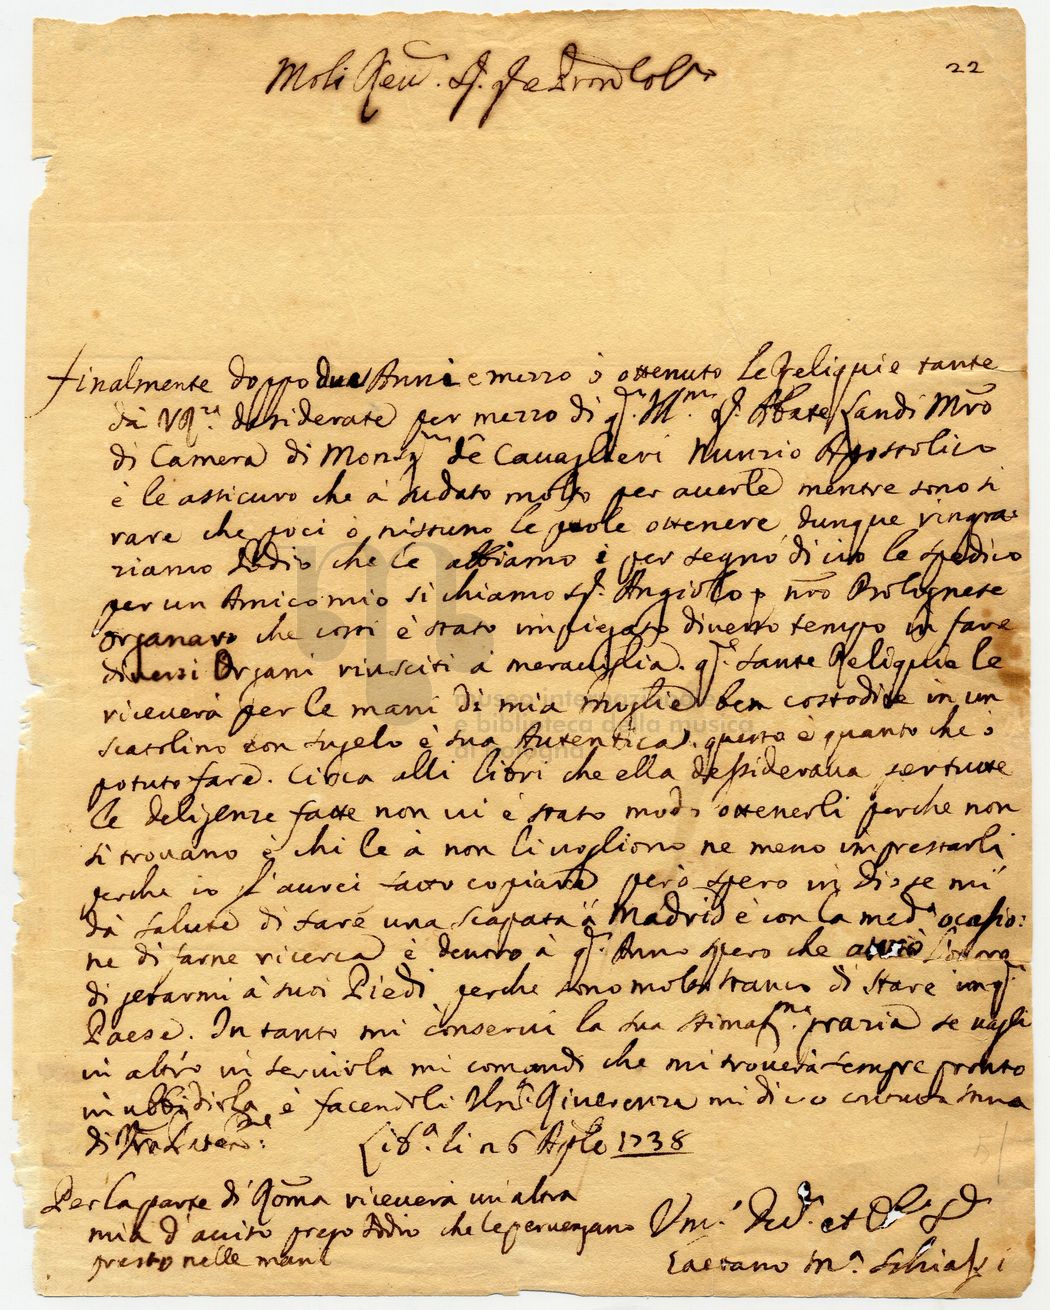 22
Molt Reu. S. P. Pron Col
finalmente doppo due Anni e mezzo ò ottenuto le Reliquie tante
dà VR. desiderate per mezzo di q. Ill. S. Abate Landi Mro
di Camera di Monsig. de Cauaglieri Nunzio Apostolico
è le assicuro che à sudato molto per auerle mentre sono si
rare che poci ò nissuno le puole ottenere dunque ringra:
ziamo Iddio che le abbiamo è per segno di cio le spedico
per un Amico mio si chiamo S. Angiollo p nro Bolognese
Organaro che cossi è stato impiegato diuerso tempo in fare
diuersi Organi riusciti à merauiglia. q. Sante Reliquie le
riceuerà per le mani di mia moglie ben costodite in un
scatolino con sugelo è sua Autentica. questo è quanto che ò
potuto fare. Circa alli libri che ella dessideraua per tutte
le deligenze fatte non ui è stato modo ottenerli perche non
si trouano è chi le à non li uogliono ne meno imprestarli
perche io l'aurei fatto copiare però spero in Dio se mi
dà salute di fare una scapata à Madrid è con la med. ocasio:
ne di farne ricerca è dentro à q. Anno spero che aurò l'onore
di jetarmi à suoi Piedi perche sono molto stanco di stare in q.
Paese. In tanto mi conserui la sua stimatss. grazia se uagli
in altro in seruirla mi comandi che mi trouerà sempre pronto
in ubbidirla è facendoli Um. Riuerenza mi dico con tutta stima
di Vra
Lis. li n 6 Aple 1738
Per la parte di Roma riceuerà un'altra
mia d'auiso prego Iddio che le peruengano
presto nelle mani
Um. Diu. et Obl. S.
Gaetano M. Schiassi
museo internazionale
e biblioteca della musica
di bologna